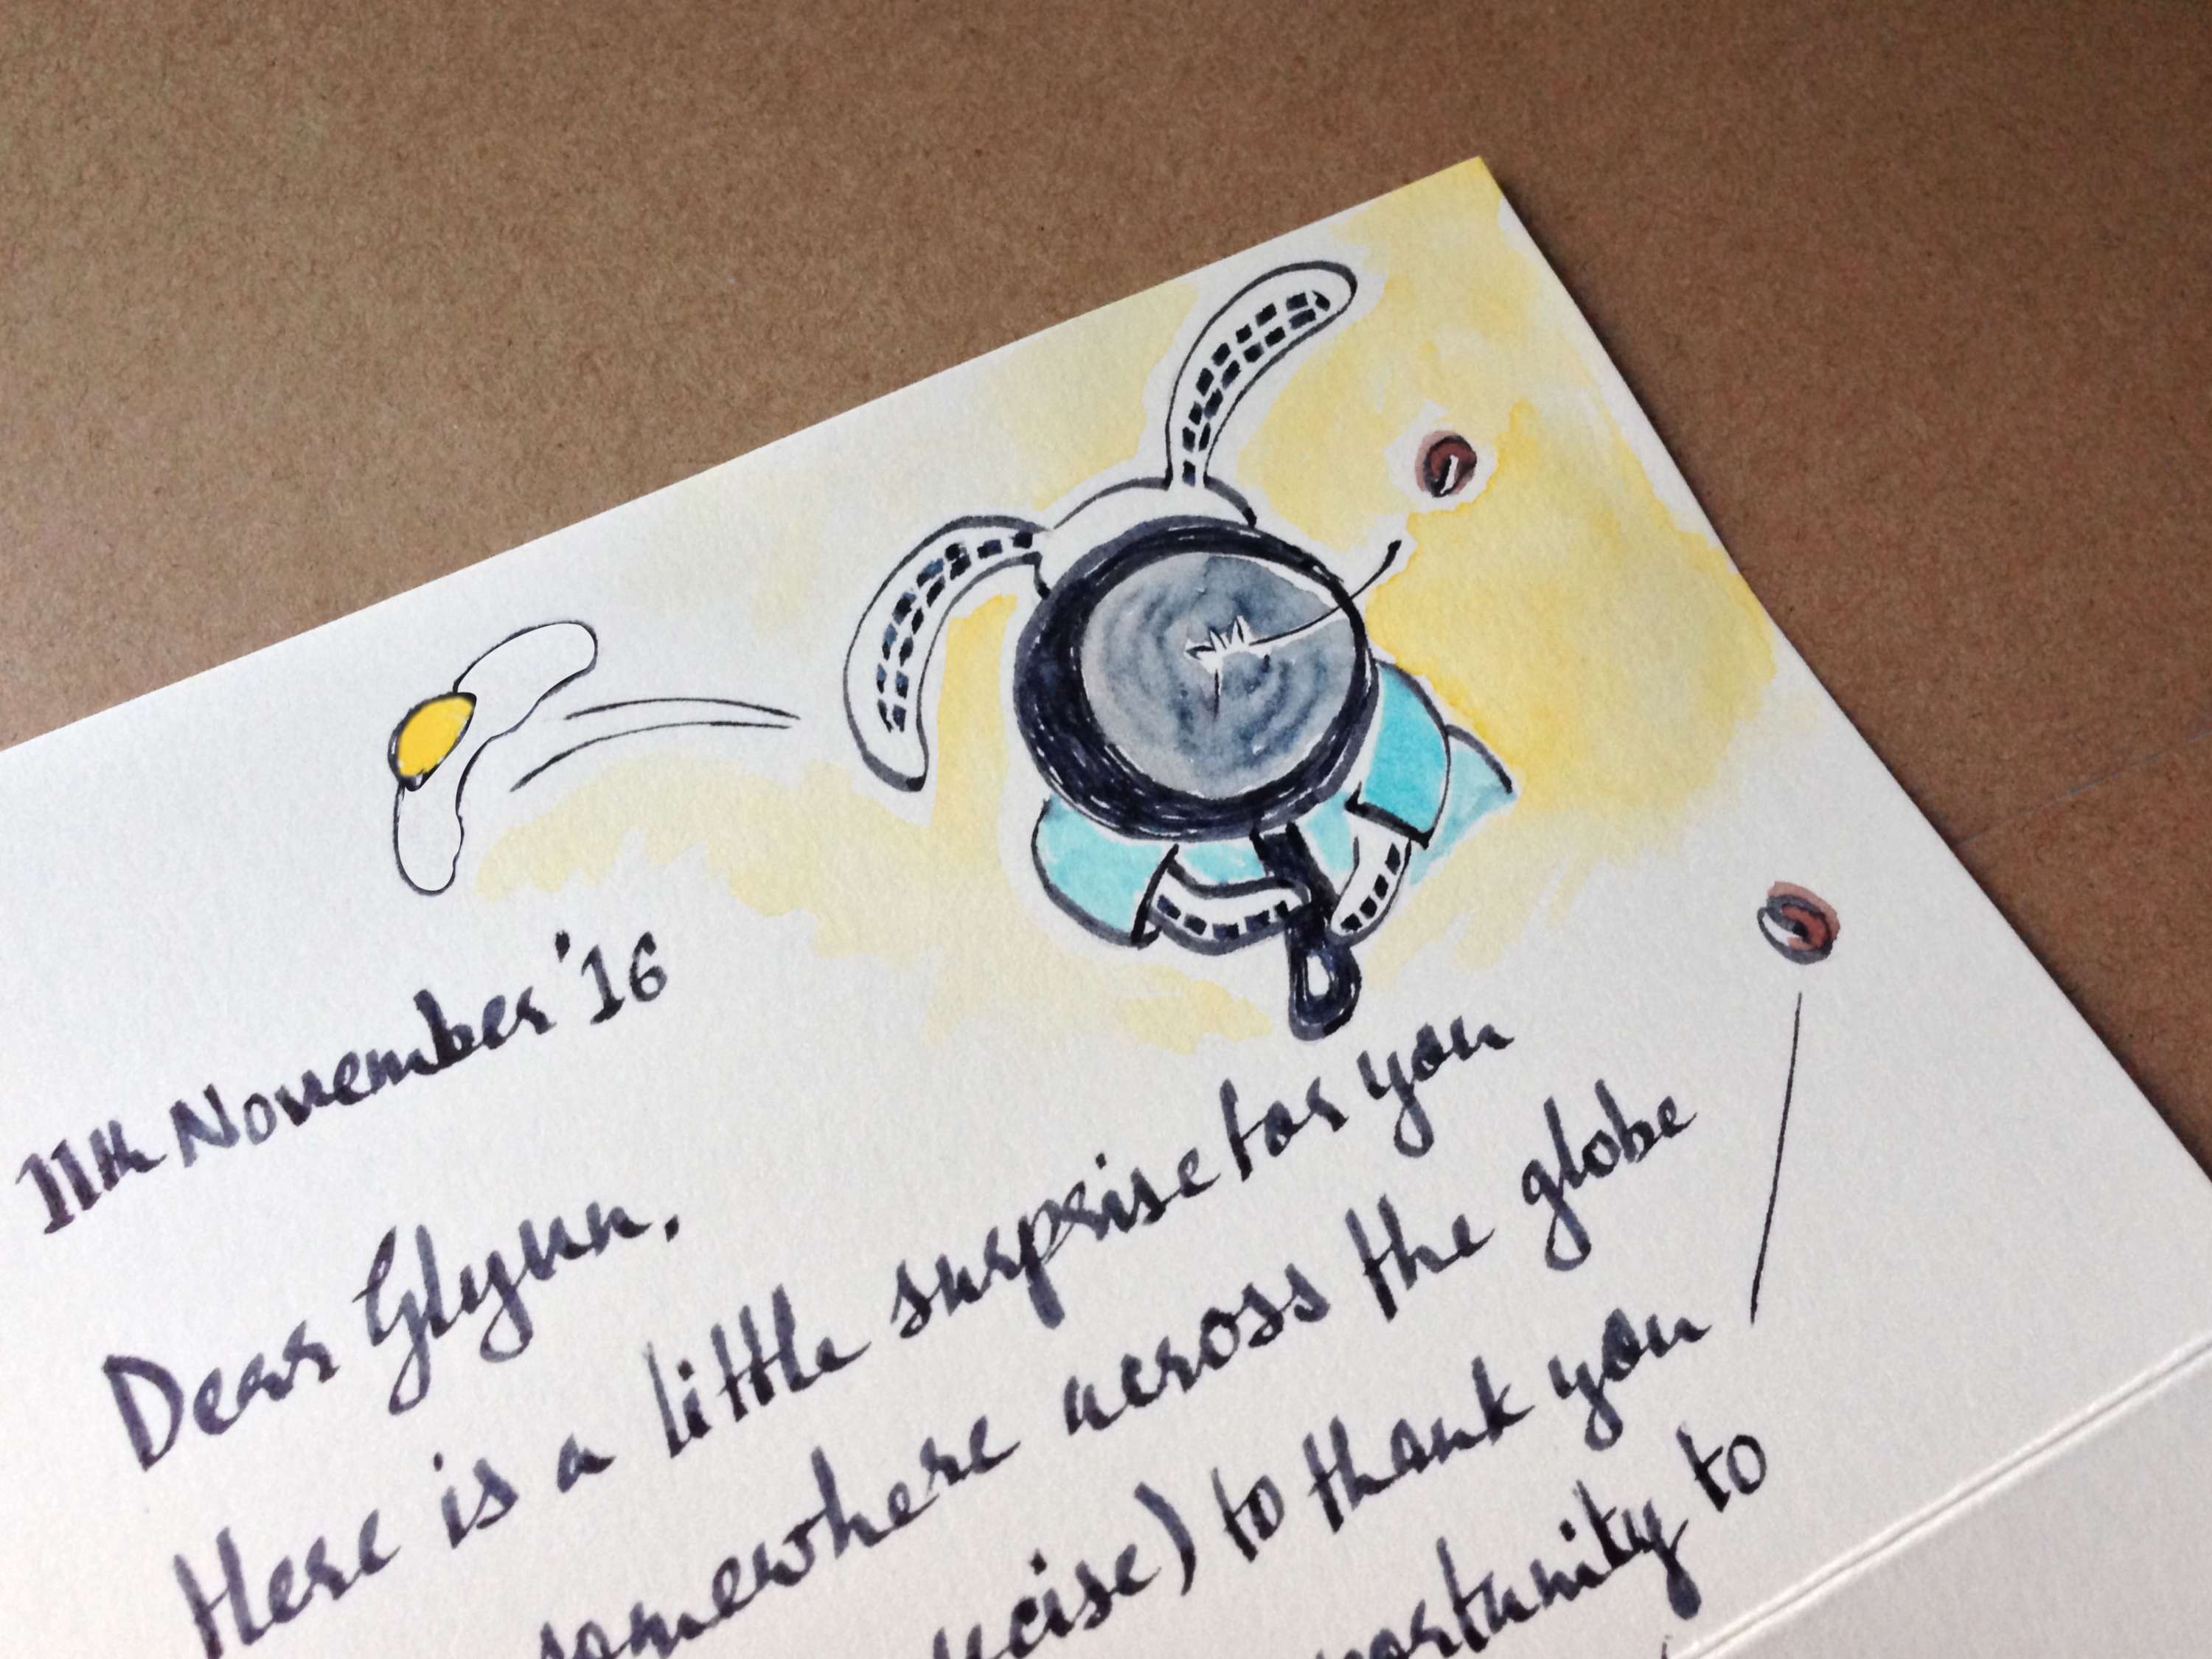 11th November '16
Dear Glynn,
Here is a little surprise for you
somewhere across the globe
to thank you
to